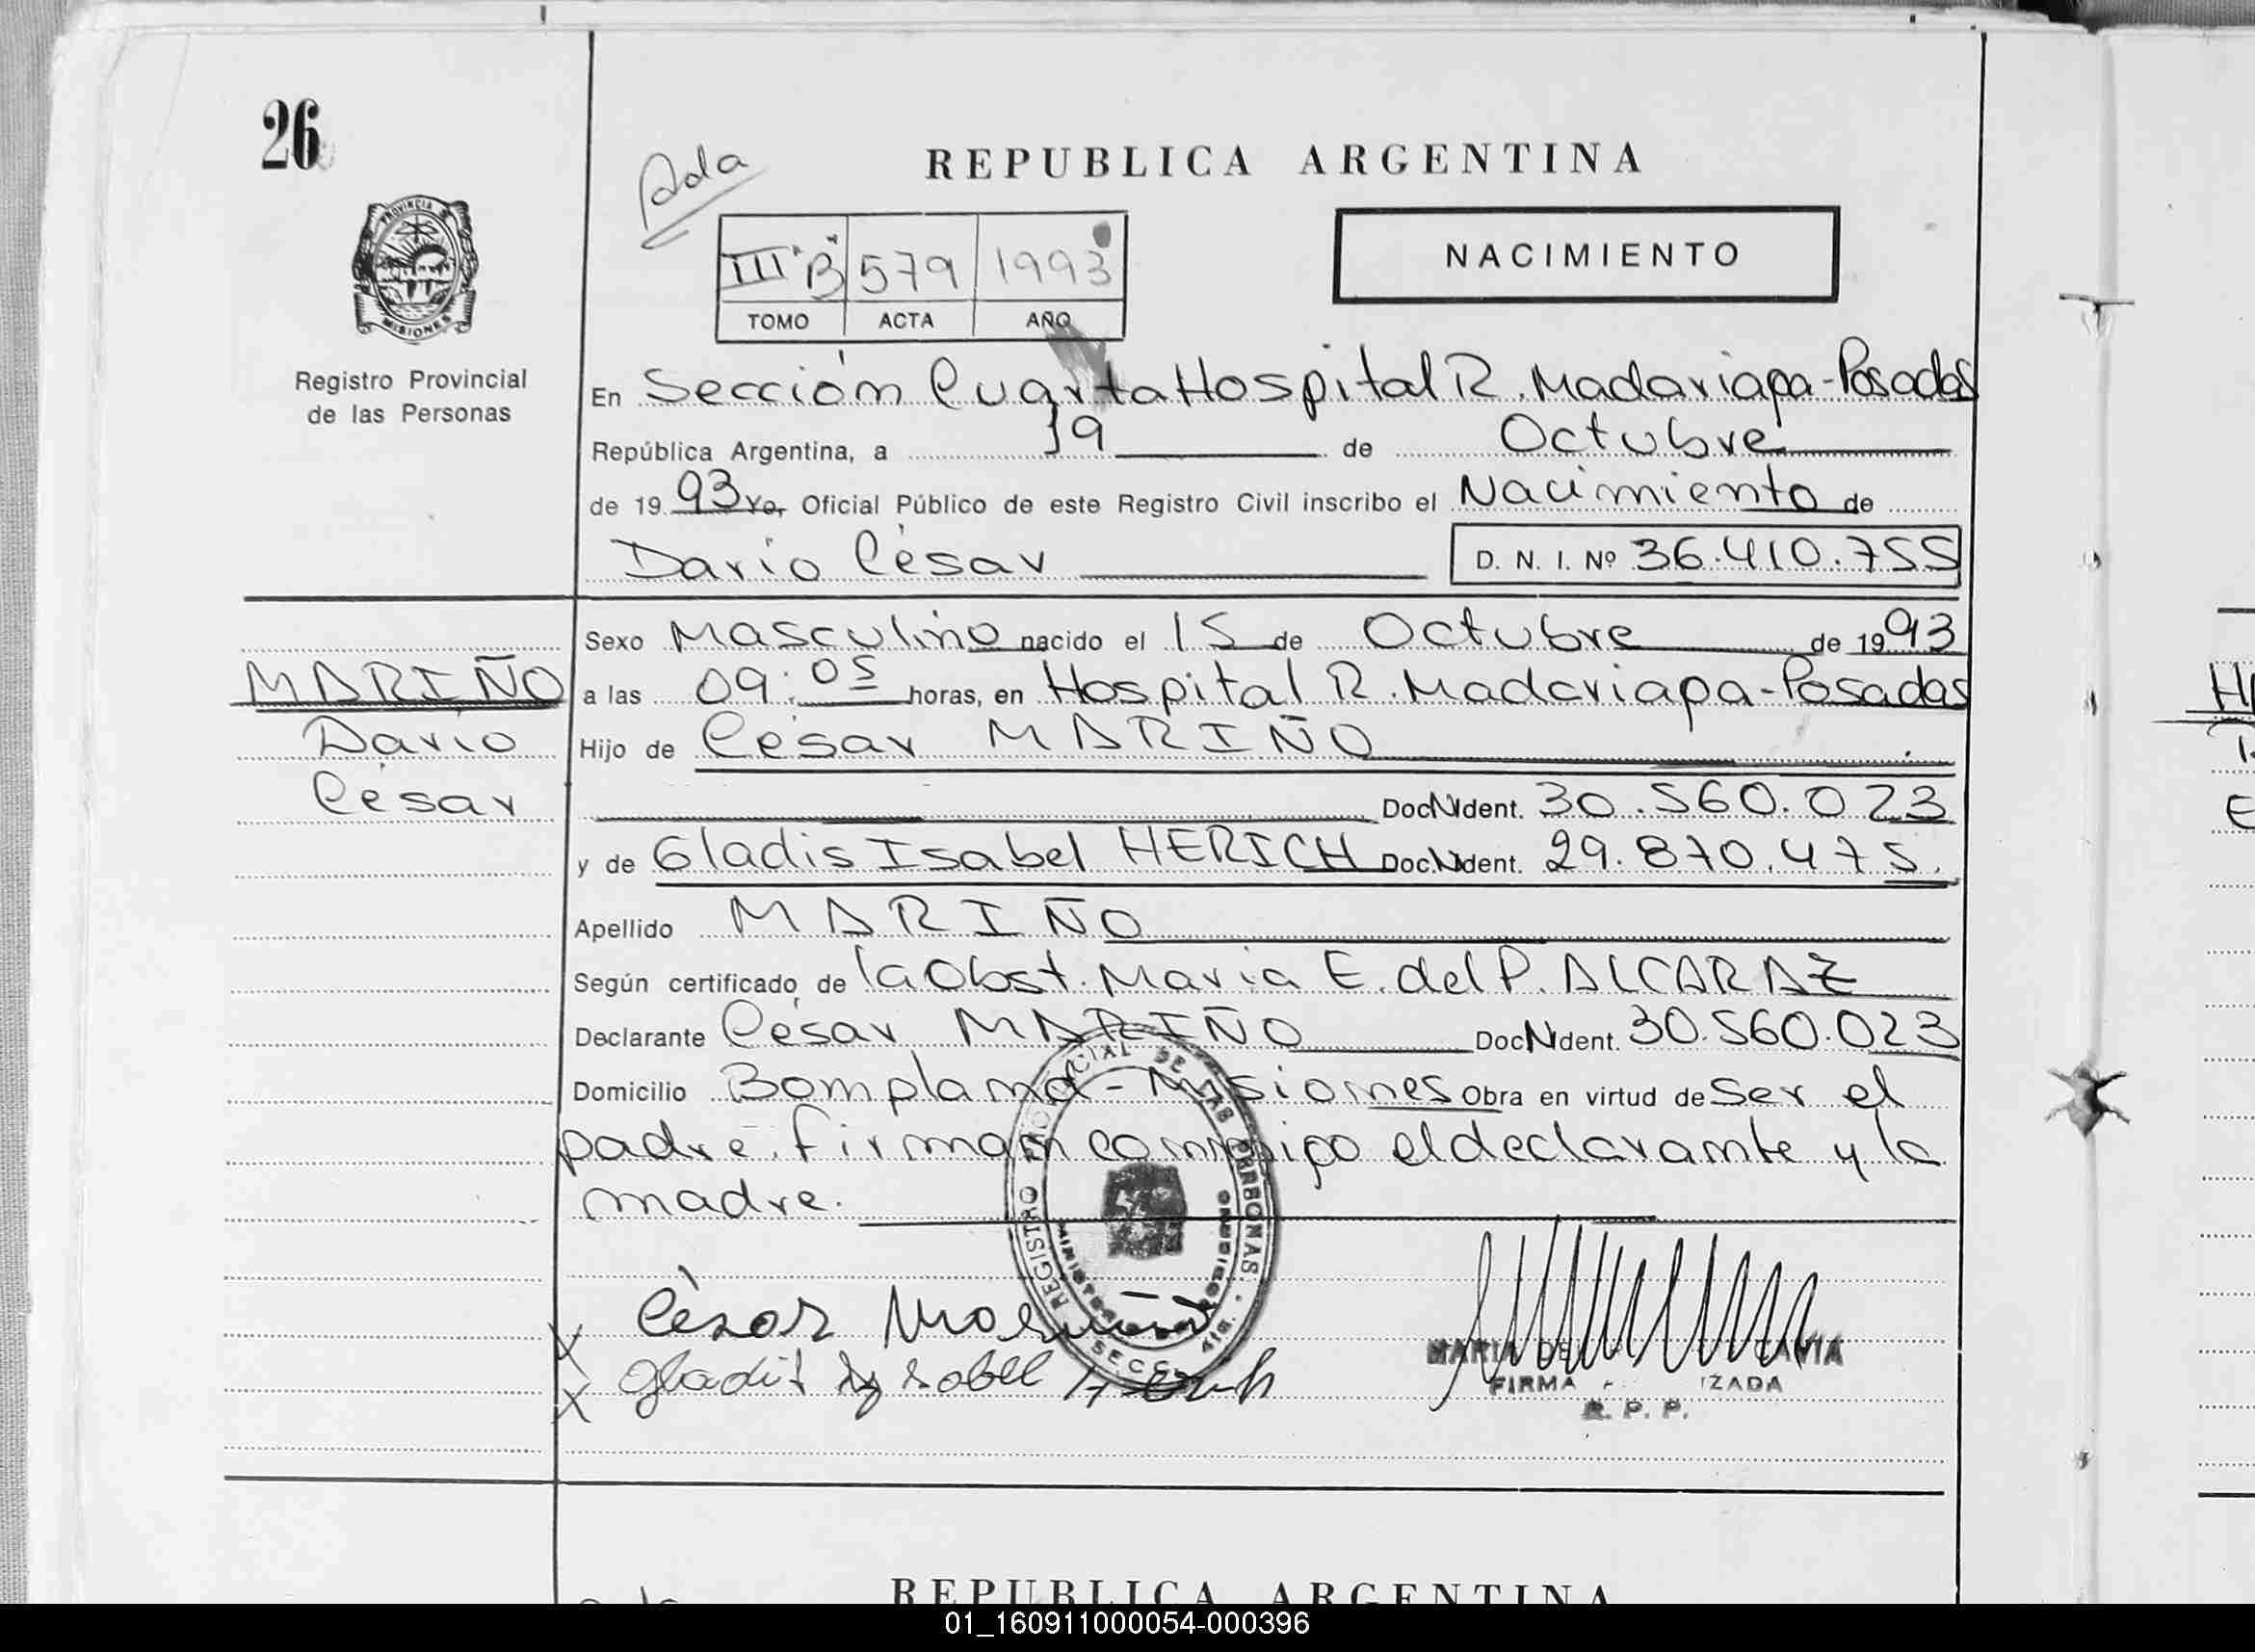 26
Ada
REPUBLICA ARGENTINA
PROVINCIA D
MISIONES
III "B" 579 1993
TOMO ACTA AÑO
NACIMIENTO
Registro Provincial
de las Personas
En Sección Cuarta Hospital R. Madariaga - Posadas
República Argentina, a 19 de Octubre
de 1993 Yo, Oficial Público de este Registro Civil inscribo el Nacimiento de
Darío César D. N. I. Nº 36.410.755
Sexo Masculino nacido el 15 de Octubre de 1993
MARIÑO a las 09:05 horas, en Hospital R. Madariaga - Posadas
Darío Hijo de César MARIÑO
César Doc N Ident. 30.560.023
y de Gladis Isabel HERICH Doc. N Ident. 29.870.475.
Apellido MARIÑO
Según certificado de la Obst. María E. del P. ALCARAZ
Declarante César MARIÑO Doc N Ident. 30.560.023
Domicilio Bompland - Misiones Obra en virtud de Ser el
padre. firman conmigo el declarante y la
madre.
REGISTRO PROVINCIAL DE LAS PERSONAS.
MINISTERIO GOBIERNO
SECC. 4ta.
x César Mariño
x Gladis Ysabel Herich
MARIA DEL
FIRMA
R. P. P.
REPUBLICA ARGENTINA
01_160911000054-000396